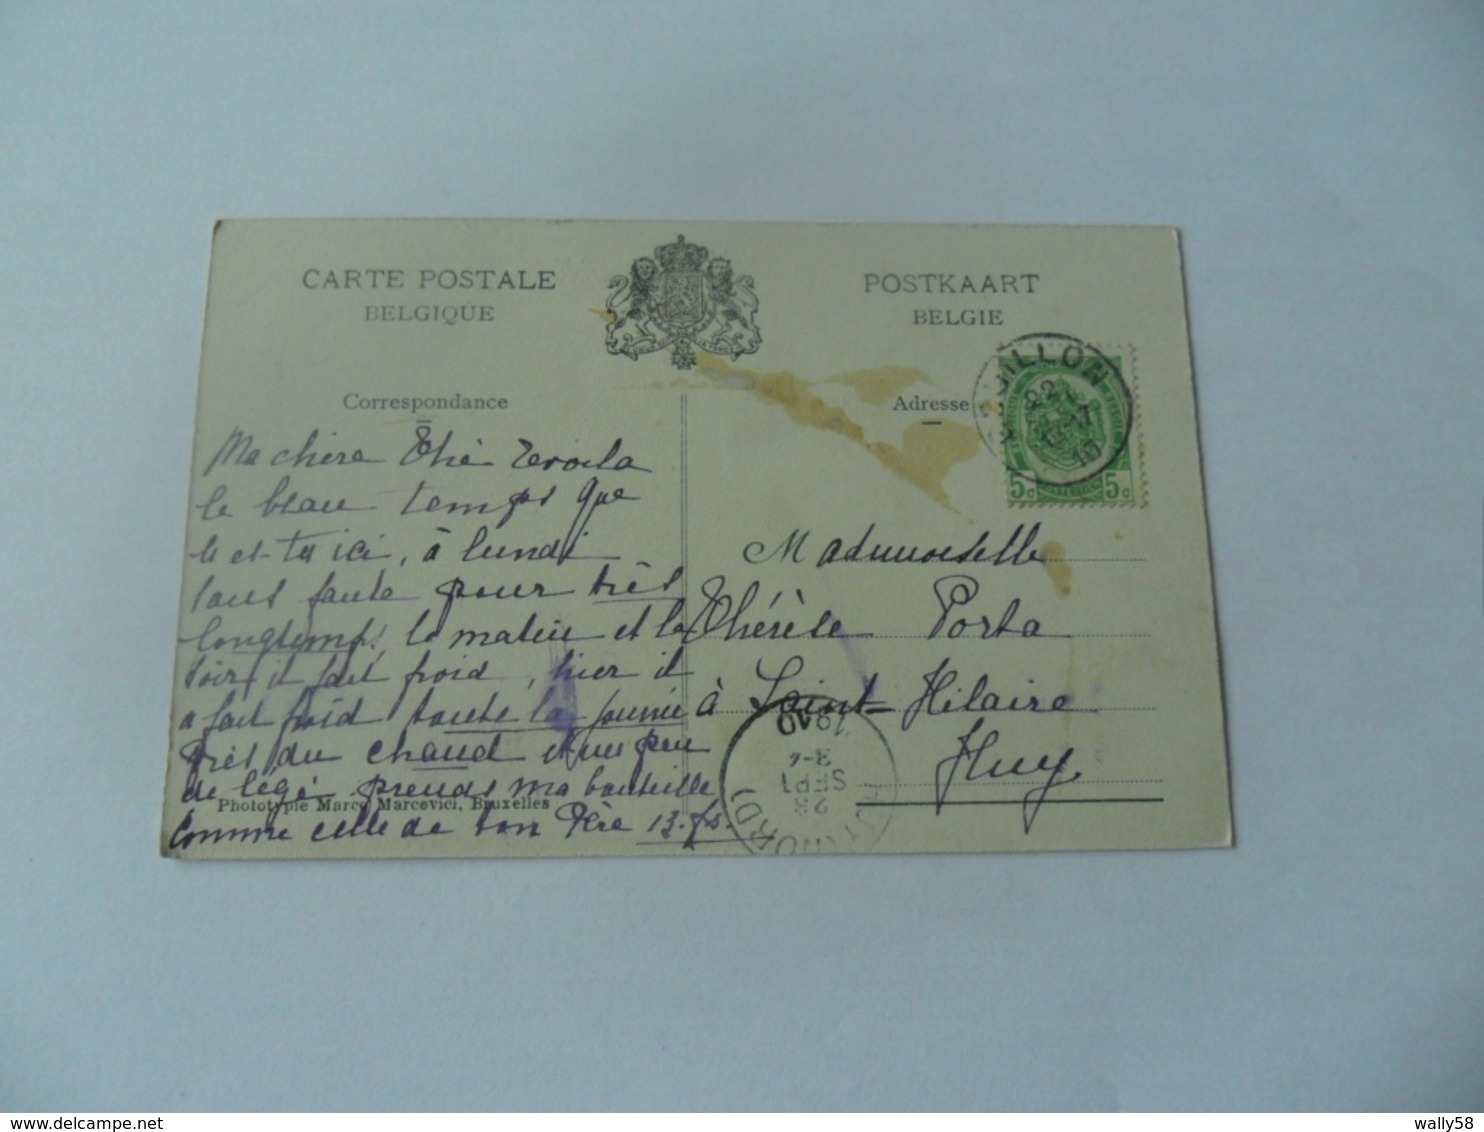 CARTE POSTALE
BELGIQUE
POSTKAART
BELGIE
Correspondance
Adresse
Ma chère Thé
le beau temps que
ici, à lundi
sans faute pour très
longtemps, le matin et le
soir il fait froid, hier il
a fait froid toute la journée
du chaud et un peu
prends ma bouteille
Comme celle de ton Père 13
Phototypie Marco Marcovici, Bruxelles
UILLON
22
10
5c 5c
Mademoiselle
Thérèse Porta
à Saint-Hilaire
Huy
1910
3-4
SEPT
23
(NORD)
delcampe.net
wally58